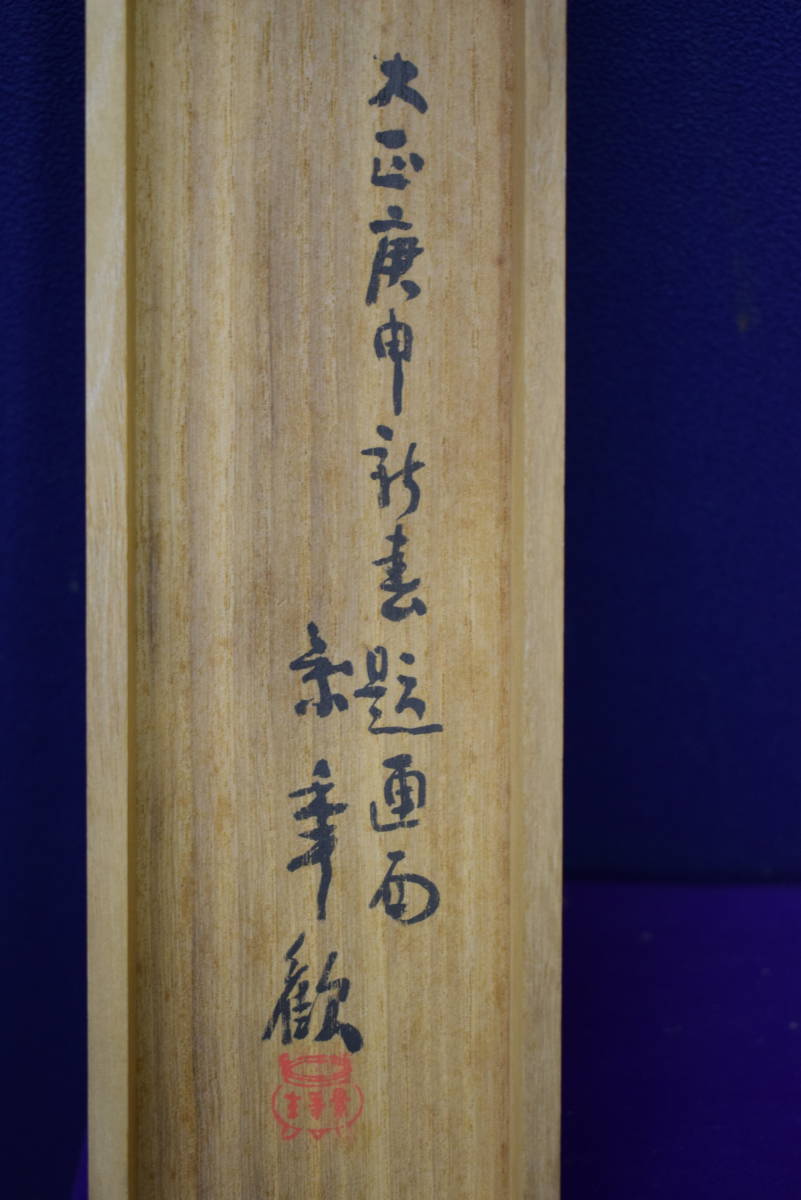 大正庚申新春題画面
季歓